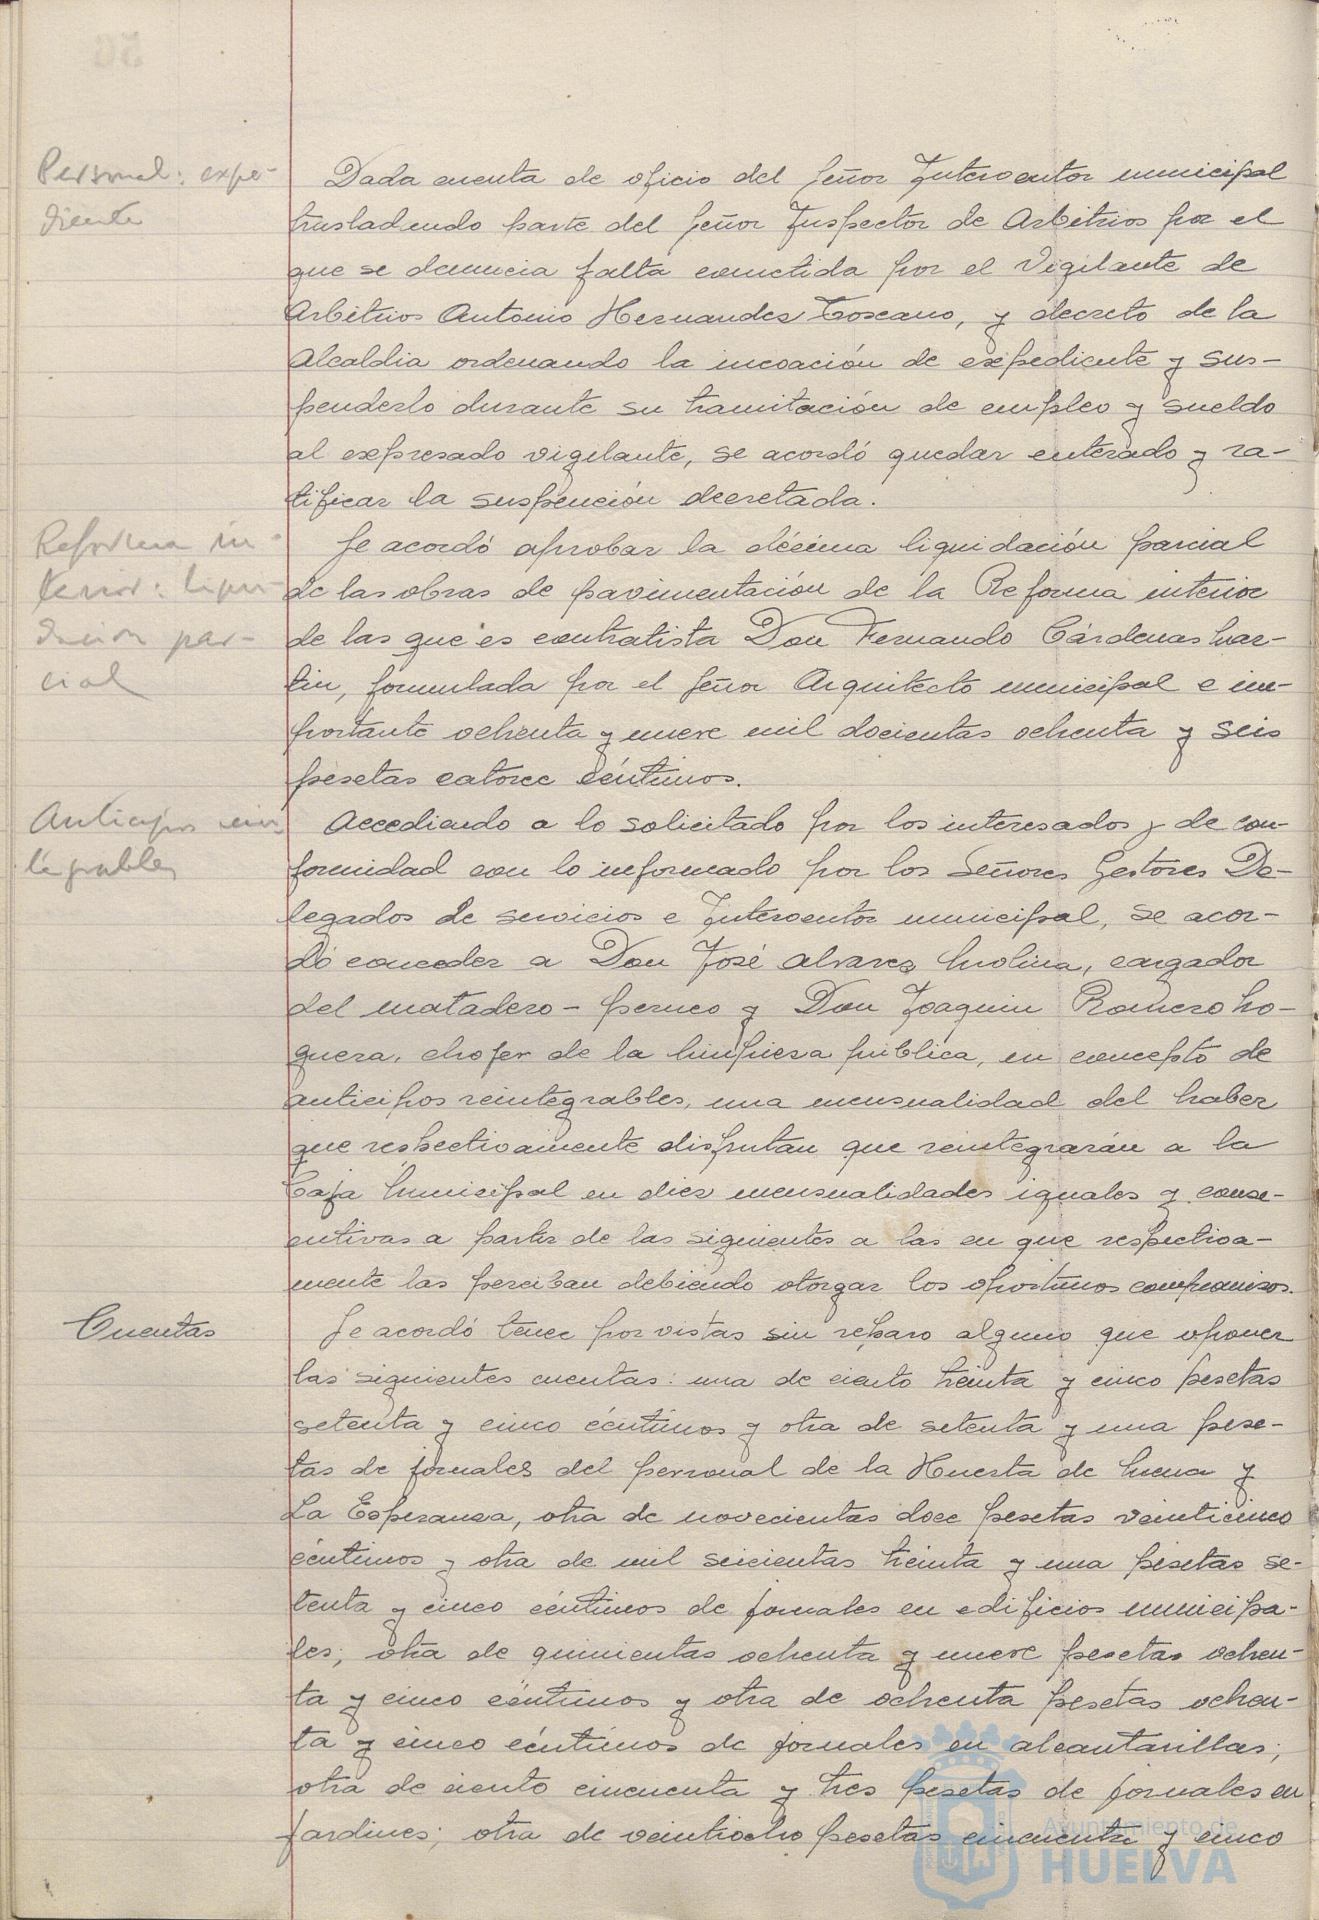 Personal: expe-
diente
Dada cuenta de oficio del Señor Interventor municipal
trasladando parte del Señor Inspector de Arbitrios por el
que se denuncia falta cometida por el Vigilante de
Arbitrios Antonio Hernandez Toscano, y decreto de la
Alcaldia ordenando la incoación de expediente y sus-
penderlo durante su tramitación de empleo y sueldo
al expresado vigilante, se acordó quedar enterado y ra-
tificar la suspención decretada.
Reforma in-
terior: liqui-
dación par-
cial
Se acordó aprobar la décima liquidación parcial
de las obras de pavimentación de la Reforma interior
de las que es contratista Don Fernando Cárdenas Mar-
tin, formulada por el Señor Arquitecto municipal e im-
portante ochenta y nueve mil docientas ochenta y seis
pesetas catorce céntimos.
Anticipos rein
tegrables
Accediendo a lo solicitado por los interesados y de con-
formidad con lo informado por los Señores Gestores De-
legados de servicios e Interventor municipal, se acor-
dó conceder a Don José Alvarez Molina, cargador
del matadero-perneo y Don Joaquin Romero No-
guera, chofer de la limpieza pública, en concepto de
anticipos reintegrables, una mensualidad del haber
que respectivamente disfrutan que reintegrarán a la
Caja Municipal en diez mensualidades iguales y conse-
cutivas a partir de las siguientes a las en que respectiva-
mente las perciban debiendo otorgar los oportunos compromisos.
Cuentas
Se acordó tener por vistas sin reparo alguno que oponer
las siguientes cuentas: una de ciento treinta y cinco pesetas
setenta y cinco céntimos y otra de setenta y una pese-
tas de jornales del personal de la Huerta de Mena y
La Esperanza, otra de novecientas doce pesetas veinticinco
céntimos y otra de mil seicientas treinta y una pesetas se-
tenta y cinco céntimos de jornales en edificios municipa-
les; otra de quinientas ochenta y nueve pesetas ochen-
ta y cinco céntimos y otra de ochenta pesetas ochen-
ta y cinco céntimos de jornales en alcantarillas;
otra de ciento cincuenta y tres pesetas de jornales en
jardines; otra de veintiocho pesetas cincuenta y cinco
Ayuntamiento de
HUELVA